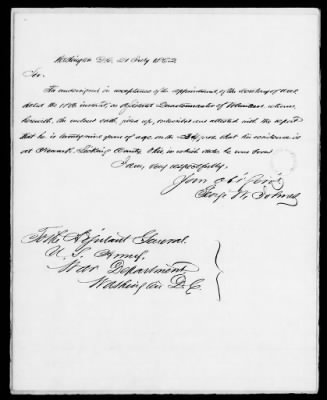 Washington D.C. 21 July 1862
Sir,
The undersigned in acceptance of the appointment, of the Secretary of War
dated the 18th instant, as Quartermaster of Volunteers, returns
herewith, the oath, filled up, subscribed and attested with the report
that he is years of age, on the that his residence is
at Newark, Licking County Ohio, in which he was born
I am, very respectfully,
Your
George W.
To the Adjutant General
U. S. Army,
War Department
Washington D.C.